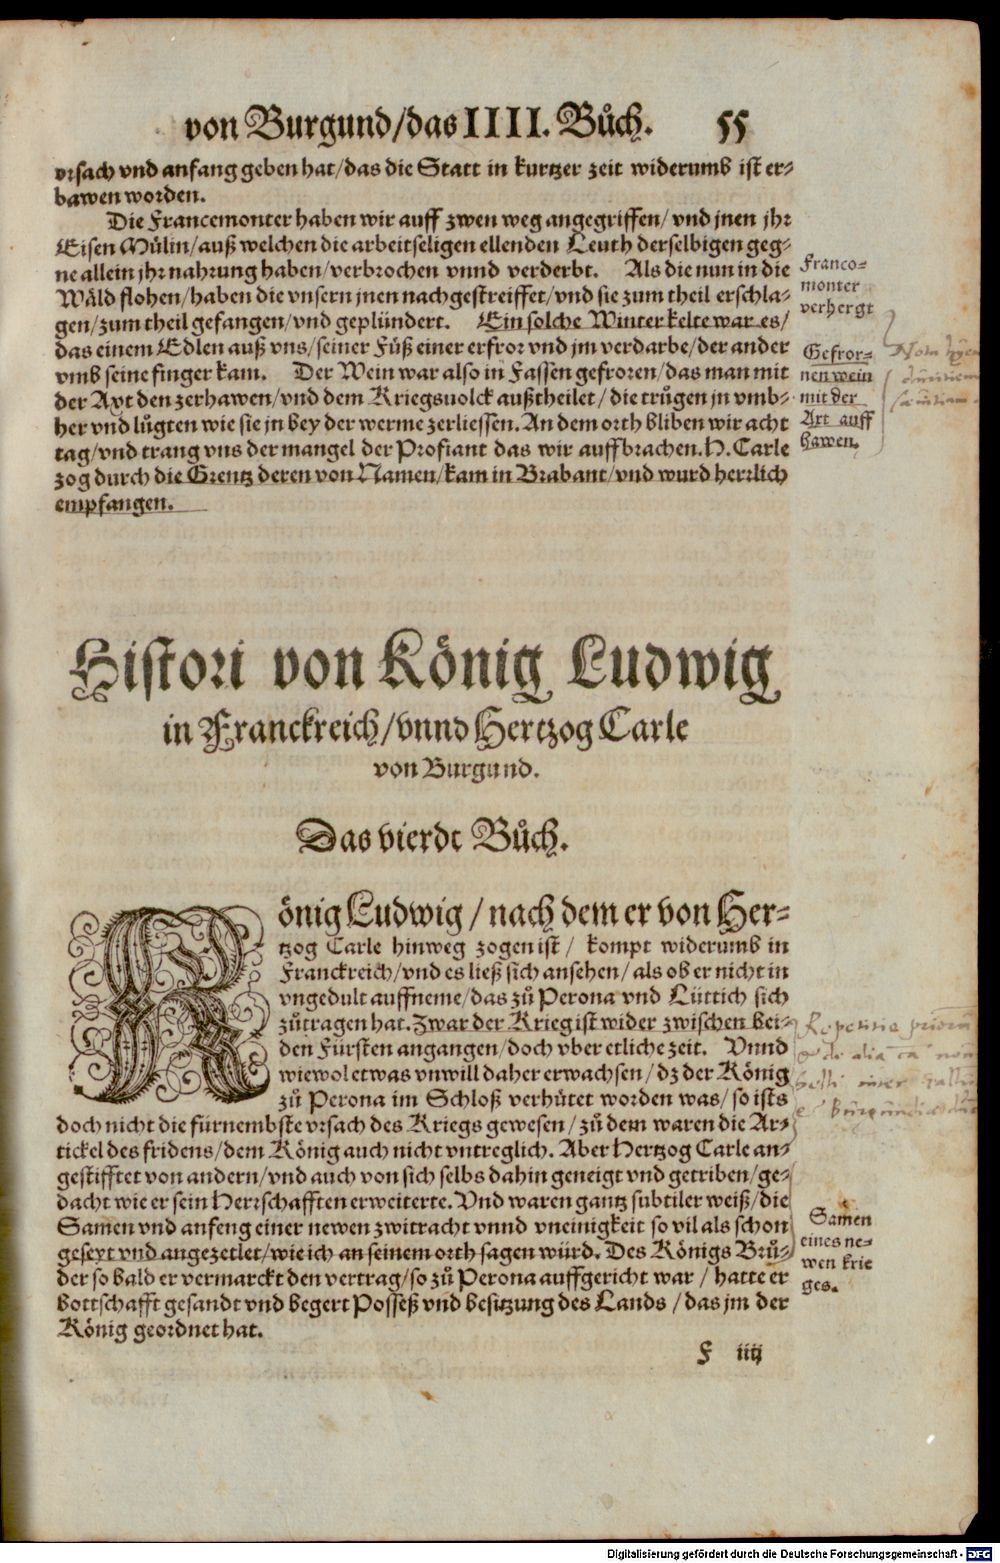 von Burgund/das IIII. Bůch. 55
vrsach vnd anfang geben hat/das die Statt in kurtzer zeit widerumb ist er-
bawen worden.
Die Francemonter haben wir auff zwen weg angegriffen/vnd jnen jhr
Eisen Mülin/auß welchen die arbeitseligen ellenden Leuth derselbigen geg-
ne allein jhr nahrung haben/verbrochen vnnd verderbt. Als die nun in die
Wäld flohen/haben die vnsern jnen nachgestreiffet/vnd sie zum theil erschla-
gen/zum theil gefangen/vnd geplündert. Ein solche Winter kelte war es/
das einem Edlen auß vns/seiner Füß einer erfror vnd jm verdarbe/der ander
vmb seine finger kam. Der Wein war also in Fassen gefroren/das man mit
der Axt den zerhawen/vnd dem Kriegsuolck außtheilet/die trůgen jn vmb-
her vnd lůgten wie sie jn bey der werme zerliessen. An dem orth bliben wir acht
tag/vnd trang vns der mangel der Profiant das wir auffbrachen. H. Carle
zog durch die Grentz deren von Namen/kam in Brabant/vnd wurd herrlich
empfangen.
Franco-
monter
verhergt
Gefror-
nen wein
mit der
Axt auff
hawen.
Histori von König Ludwig
in Franckreich/vnnd Hertzog Carle
von Burgund.
Das vierdt Bůch.
König Ludwig/nach dem er von Her-
tzog Carle hinweg zogen ist/ kompt widerumb in
Franckreich/vnd es ließ sich ansehen/als ob er nicht in
vngedult auffneme/das zů Perona vnd Lüttich sich
zůtragen hat. Zwar der Krieg ist wider zwischen bei-
den Fürsten angangen/doch vber etliche zeit. Vnnd
wiewol etwas vnwill daher erwachsen/dz der König
zů Perona im Schloß verhůtet worden was/so ists
doch nicht die fürnembste vrsach des Kriegs gewesen/zů dem waren die Ar-
tickel des fridens/dem König auch nicht vntreglich. Aber Hertzog Carle an-
gestifftet von andern/vnd auch von sich selbs dahin geneigt vnd getriben/ge-
dacht wie er sein Herrschafften erweiterte. Vnd waren gantz subtiler weiß/die
Samen vnd anfeng einer newen zwitracht vnnd vneinigkeit so vil als schon
geseyt vnd angezetlet/wie ich an seinem orth sagen würd. Des Königs Brů-
der so bald er vermarckt den vertrag/so zů Perona auffgericht war/hatte er
bottschafft gesandt vnd begert Posseß vnd besitzung des Lands/das jm der
König geordnet hat.
Samen
eines ne-
wen krie
ges.
F iiij
Digitalisierung gefördert durch die Deutsche Forschungsgemeinschaft - DFG